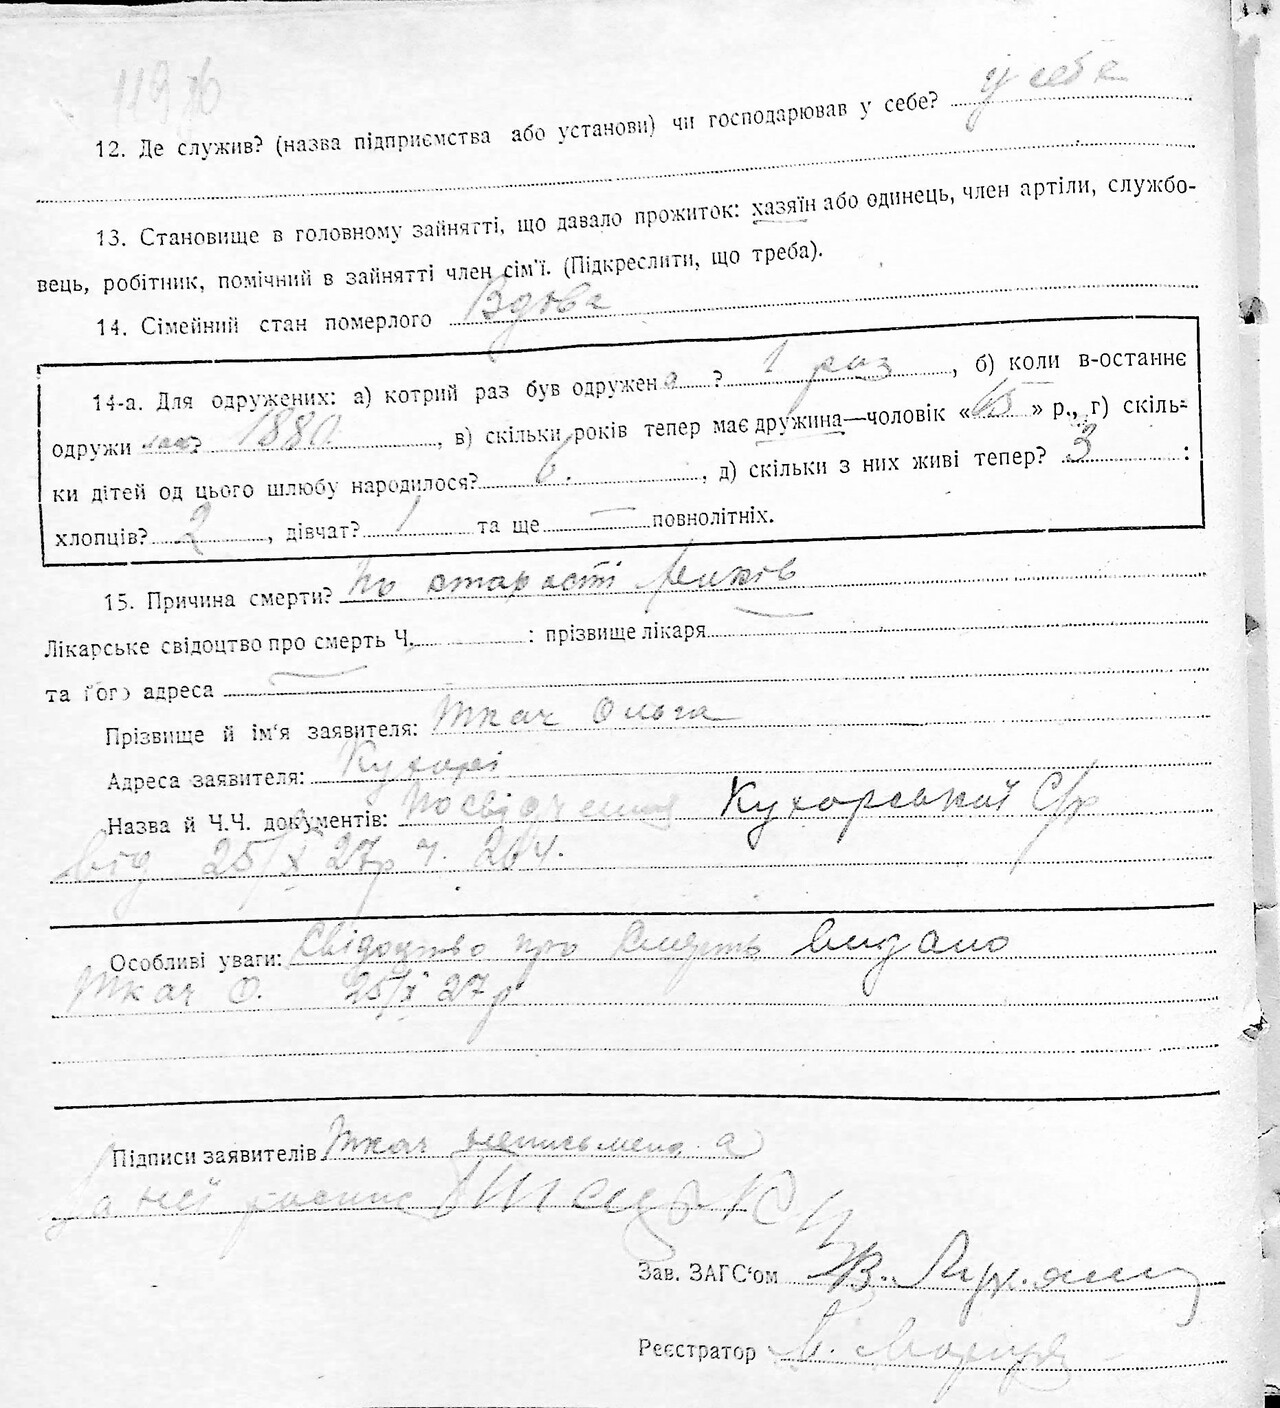 119 зв
у себе
12. Де служив? (назва підприємства або установи) чи господарював у себе?
13. Становище в головному зайнятті, що давало прожиток: хазяїн або одинець, член артіли, службо-
вець, робітник, помічний в зайнятті член сім'ї. (Підкреслити, що треба).
14. Сімейний стан померлого Вдова
14-а. Для одружених: а) котрий раз був одружен а ? 1 раз, б) коли в-останнє
одружи лась? 1880, в) скільки років тепер має дружина—чоловік «65» р., г) скіль-
ки дітей од цього шлюбу народилося? 6., д) скільки з них живі тепер? 3 :
хлопців? 2, дівчат? 1 та ще — повнолітніх.
15. Причина смерти? По старості
Лікарське свідоцтво про смерть Ч. : прізвище лікаря —
та його адреса —
Прізвище й ім'я заявителя: Ткач Ольга
Адреса заявителя: Кухарі
Назва й Ч.Ч. документів: Посвідчення Кухорської С/р
від 25/X 27р ч. 264.
Особливі уваги: Свідоцтво про смерть видано
Ткач О. 25/X 27р
Підписи заявителів Ткач неписьмена а
за неї росписс
Зав. ЗАГС'ом В.
Реєстратор